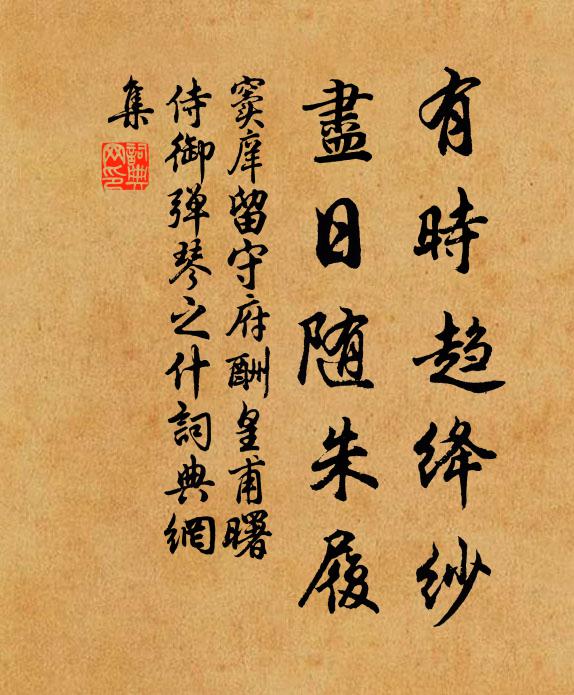 有時趋绛紗
盡日随朱履
竇庠留守府酬皇甫曙
侍御弹琴之什詞典網
集
詞典
网印